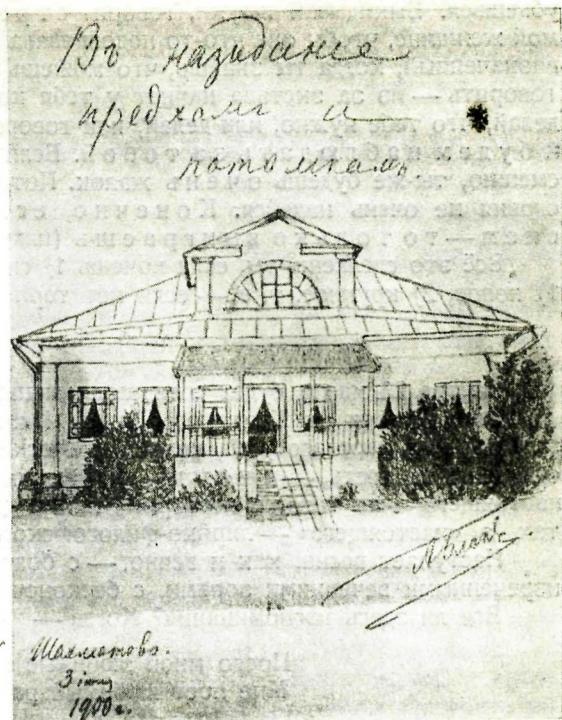 Въ назиданіе
предкамъ и
потомкамъ.
А Блокъ.
Шахматово.
3
1900 г.